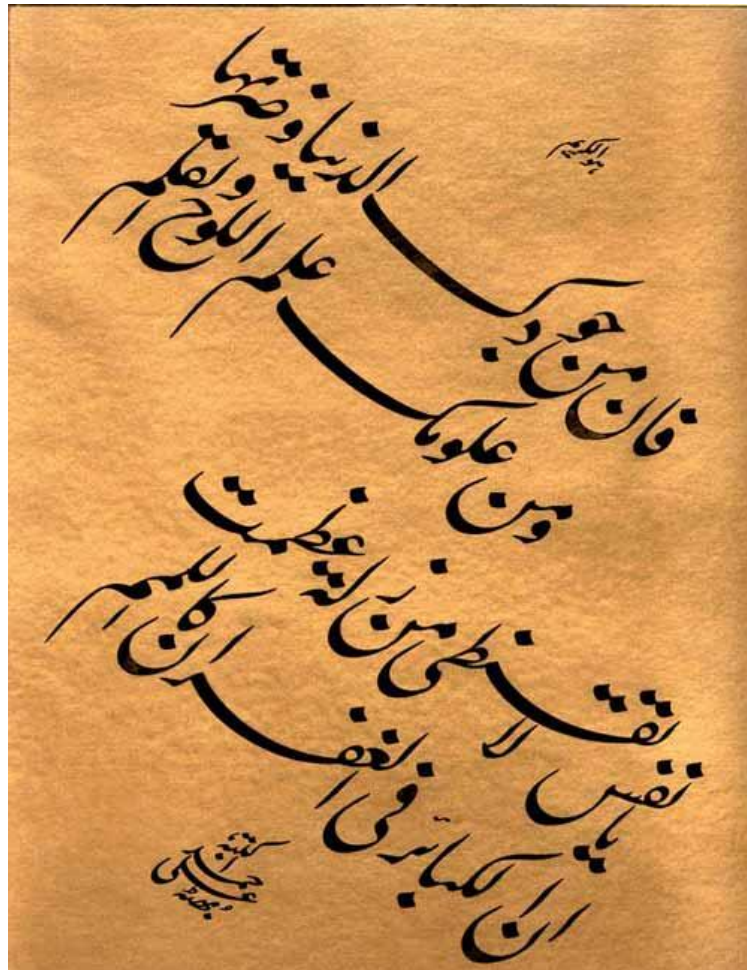 هو الكريم
فان من جودك الدنيا وضرتها
ومن علومك علم اللوح والقلم
يا نفس لا تقنطى من زلة عظمت
ان الكبائر فى الغفران كاللمم
كتبه احمد على